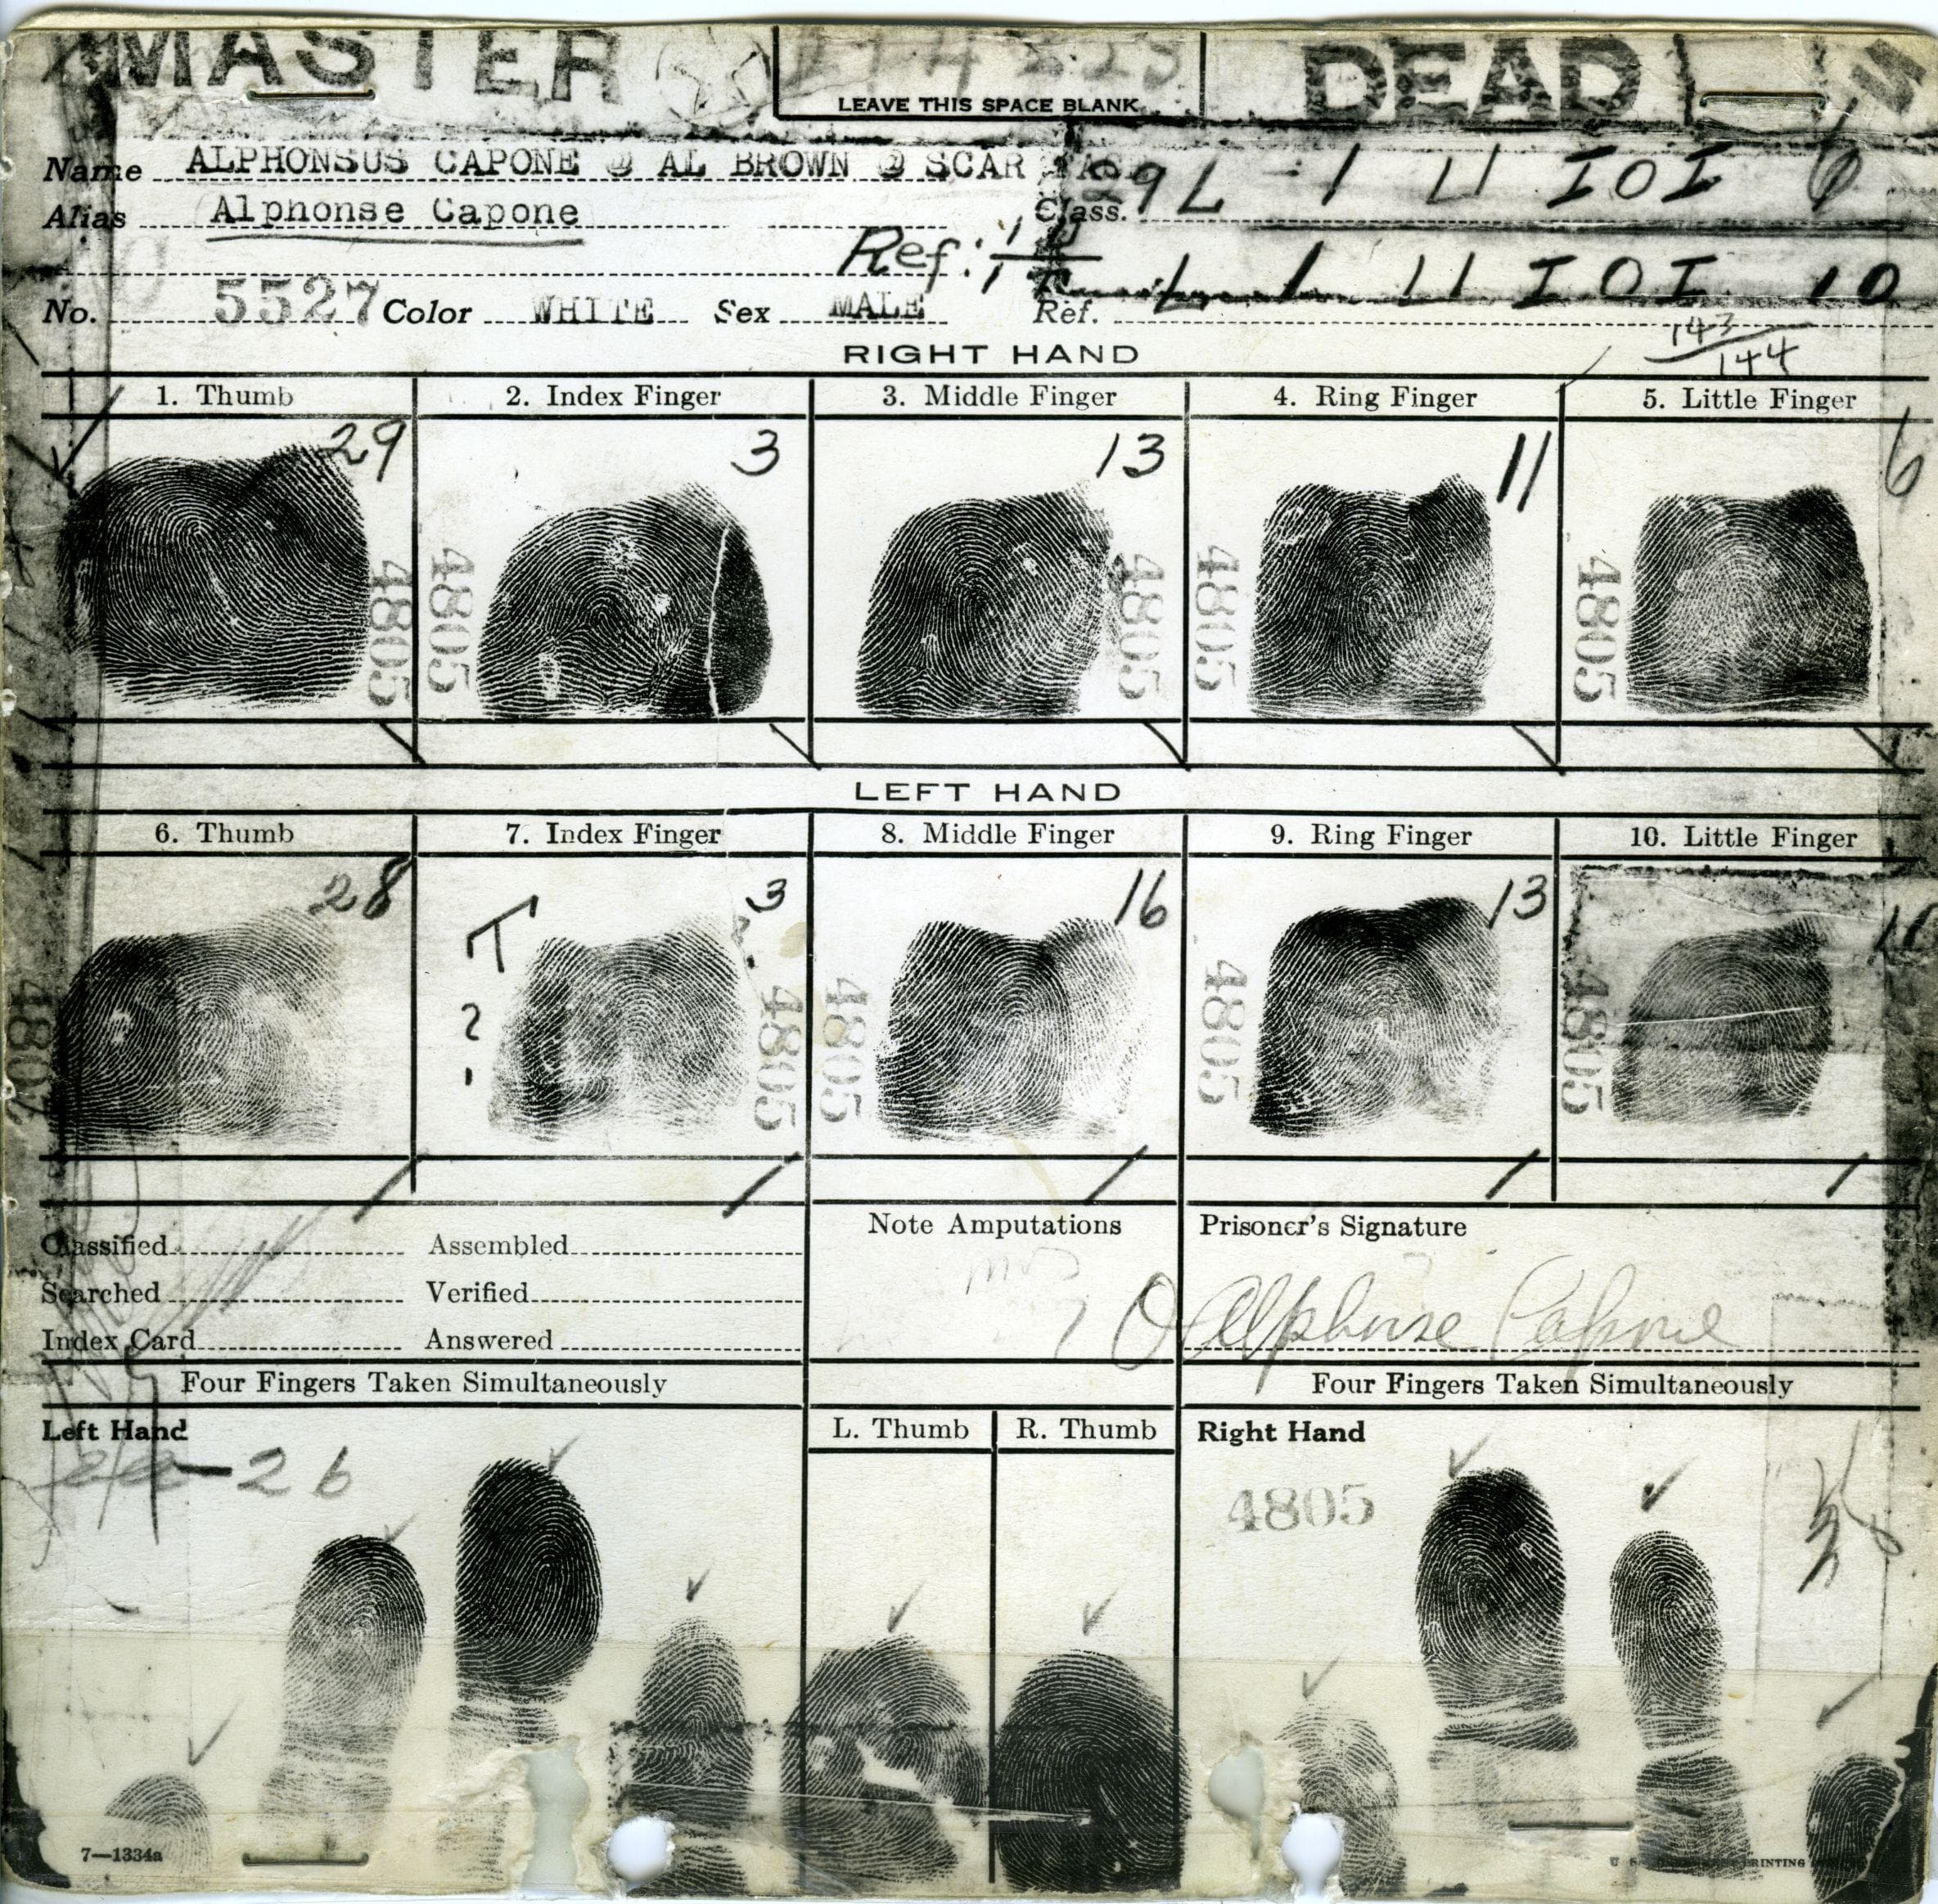 MASTER DEAD
LEAVE THIS SPACE BLANK
Name ALPHONSUS CAPONE @ AL BROWN @ SCAR
Alias Alphonse Capone
Class. 29 L 1 U IOI 6
Ref: L 1 U IOI 10
No. 5527 Color WHITE Sex MALE Ref.
143
144
RIGHT HAND
1. Thumb 2. Index Finger 3. Middle Finger 4. Ring Finger 5. Little Finger
29 3 13 11 6
4805 4805 4805 4805 4805
LEFT HAND
6. Thumb 7. Index Finger 8. Middle Finger 9. Ring Finger 10. Little Finger
28 3 16 13
T
?
4805 4805 4805 4805
Note Amputations Prisoner's Signature
Classified Assembled
Searched Verified
Alphonse Capone
Index Card Answered
Four Fingers Taken Simultaneously Four Fingers Taken Simultaneously
Left Hand L. Thumb R. Thumb Right Hand
26
4805
7—1334a PRINTING